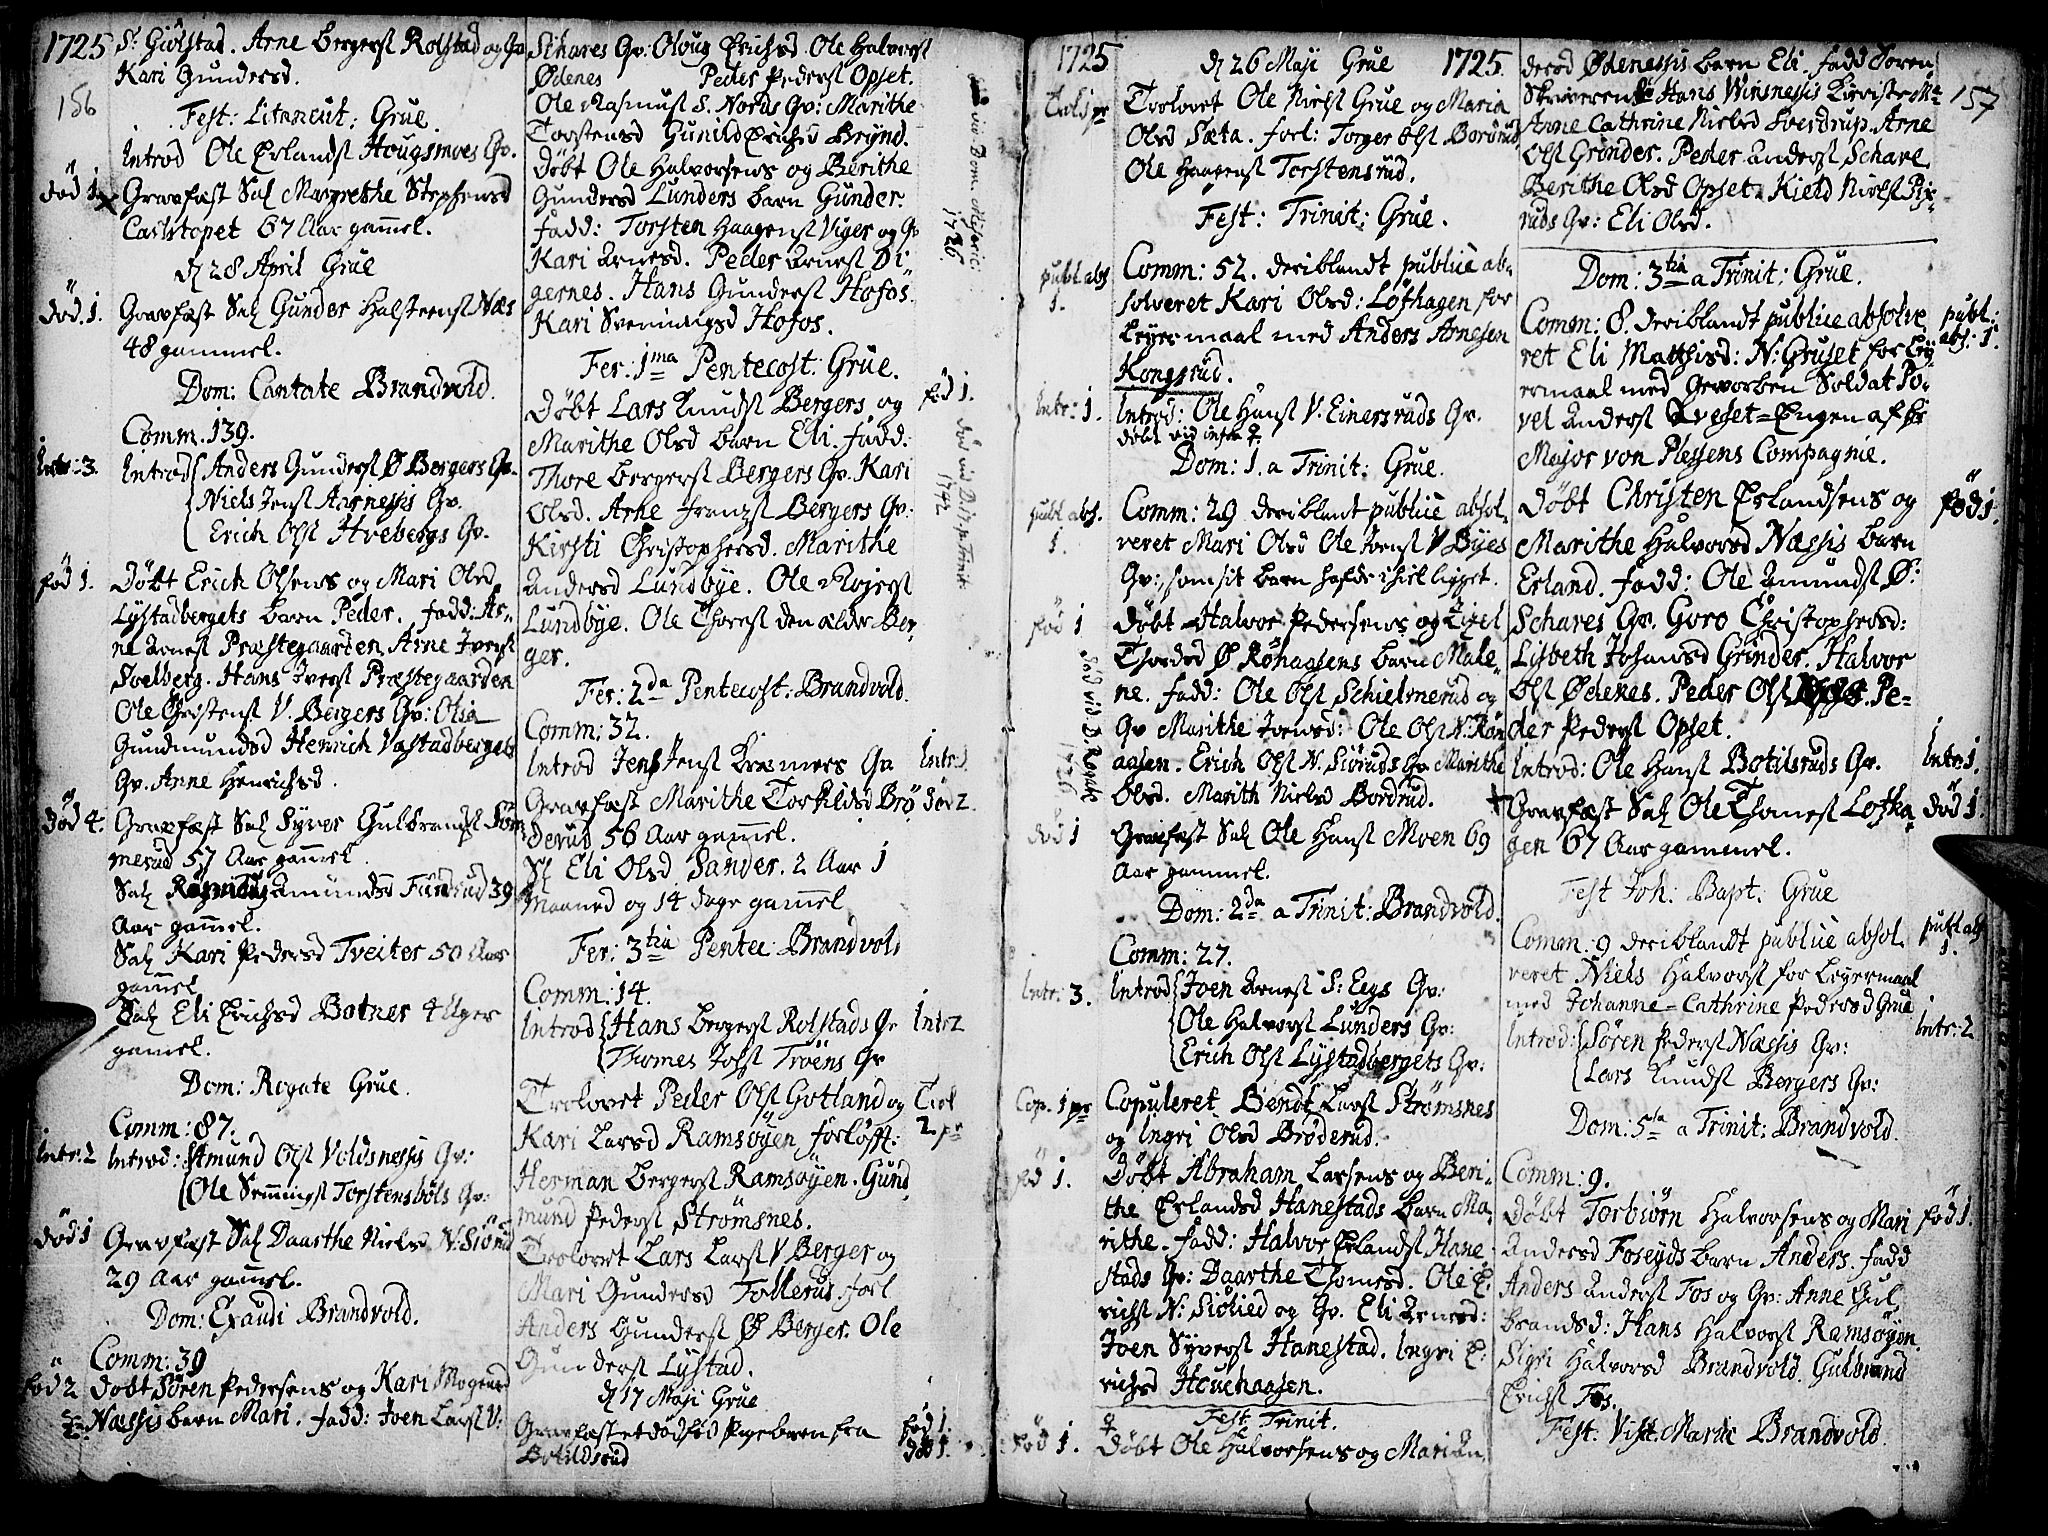 1725
156
S. Giölstad. Arne Bergerst Rolstad og Gv
Kari Gundersd.
Fest: Litaneut: Grue.
Introd Ole Erlandst Hougsmoes Qv.
død 1
Gravfæst Sal Margrethe Stephensd
Casletopet 67 Aar gamel.
d 28 April Grue
død. 1.
Gravfæst Sal Gunder Halsteenst Næs
48 gammel.
Dom: Cantate Brandvold.
Comm. 139.
Intr: 3.
Introd Anders Gunderst Ø Bergers Qv.
Niels Jenst Aarnessis Qv.
Erich Olst Hvebergs Qv.
fød 1.
Døbt Erich Olsens og Mari Olsd
Lystadbergets barn Peder. fadd: Ar-
ne Arnest Præstegaarden, Arne Iverst
Soelberg. Hans Iverst Præstegaarden
Ole Christenst V. Bergers Qv: Olia
Gundmundsd Henrich Vastadbergets
Qv. Anne Henrichsd.
død 4.
Gravfæst Sal Syver Gulbrandst Som-
merud 57 Aar gammel.
Sal Amundsd Fundrud 39
Aar gammel.
Sal Kari Pedersd Tveiter 50 Aar
gammel
Sal Eli Erichsd Botner 4 Uger
gamel.
Dom: Rogate Grue.
Comm: 87.
Intr: 2
Introd: Amund Olst Voldsnessis Qv:
Ole Semmingst Torstensböls Qv:
død 1
Gravfæst Sal Daarthe Nielsd N. Siörud
29 Aar gamel.
Dom: Exaudi Brandvold.
Comm: 39
fød 2
Døbt Søren Pedersens og Kari Mogensd
Næssis barn Mari. fadd: Joen Larst V.
Schares Qv. Olous Erichsd. Ole Halvorst
Ødenes Peder Pederst Opset.
Ole Rasmust S. Nords Qv: Marithe
Torstensd Gunild Erichsd Brynd.
Døbt Ole Halvorsens og Berithe
Gundersd Lunders barn Gunder.
fadd: Torsten Haagenst Viger og Qv
Kari Arnesd. Peder Arnest Di-
gernes. Hans Gunderst Hofos.
Kari Svenningsd Hofos.
Fer: 1ma Pentecost: Grue.
fød 1.
Døbt Lars Knudst Bergers og
Marithe Olsd barn Eli. fadd:
Thore Bergerst Bergers Qv. Kari
Olsd. Arne Franzst Bergers Qv:
Kirsti Christophersd. Marithe
Andersd Lundbye. Ole Rojerst
Lundbye. Ole Thorest den ældr Ber-
ger.
Fer: 2da Pentecost: Brandvold.
Comm: 32.
Introd Jens Jenst Kræmmers Qv
Intr: 1
Gravfæst Marithe Torkildsd Brø-
død 2.
derud 56 Aar gamel.
Sl Eli Olsd Sander. 2 Aar 1
Maaned og 14 dage gamel
Fer: 3tia Pentec: Brandvold
Comm: 14.
Introd Hans Bergerst Rolstads Qv
Thomes Johst Troëns Qv
Intr 2
Trolovet Peder Olst Gotland og
Trol
2. pr
Kari Larsd Ramsøyen forløfft:
Herman Bergerst Ramsöyen. Gund
mund Pederst Strömsnes.
Trolovet Lars Larst V Berger og
Mari Gundersd Tollerud forl
Anders Gunderst Ø Berger. Ole
Gunderst Lystad.
d 17 Maji Grue
Gravfæst et dødfød Pigebarn fra
fød 1.
død 1.
Botildsrud
død vid Dom. Miséric:
1726
død vid D. 17 p. Trinit:
1742
1725
d 26 Maji Grue
1725.
Trol 1 pr
Trolovet Ole Nielst Grue og Maria
Olsd Sæta. forl: Torger Olst Borerud
Ole Haagenst Torstensrud.
Fest: Trinit: Grue.
publ abs
1.
Comm: 52. deriblandt publice ab-
solveret Kari Olsd: Löfhagen for
Leyermaal med Anders Arnesen
Kongsrud.
Intr: 1.
Introd: Ole Hanst V. Einersruds Qv.
døbt vid infra
Dom: 1. a Trinit: Grue.
publ abs.
1.
Comm: 29 deriblant publice absol-
veret Mari Olsd Ole Joenst V Byes
Qv: som sit barn hafde ihiel ligget.
fød 1
Døbt Halvor Pedersens og Eigel
Thordsd Ø Röhaasens barn Male-
ne. fadd: Ole Olst Schielmerud og
Qv Marithe Joensd: Ole Olst N. Rör
aasen. Erich Olst N. Siöruds Qv Marithe
Olsd. Marith Nielsd Bordrud.
død vid D. Rogate
1726
død 1
Gravfæst Sal Ole Hanst Moen 69
Aar gammel.
Dom: 2da a Trinit: Brandvold.
Comm: 27.
Intr: 3.
Introd Joen Arnest S: Eegs Qv:
Ole Halvorst Lunders Qv:
Erich Olst Lystadbergets Qv:
Cop. 1 pr
Copuleret Bendt Larst Strømsnes
og Ingri Olsd Brøderud.
fød 1.
Døbt Abraham Larsens og Beri-
the Erlandsd Hanestads barn Ma-
rithe. fadd: Halvor Erlandst Hane-
stads Qv: Daarthe Thomesd. Ole E-
richst N: Siölied og Qv. Eli Arnesd:
Joen Syverst Hanestad. Ingri E-
richsd Houchaasen.
Fest Trinit.
fød 1.
Døbt Ole Halvorsens og Mari An-
157
dersd Ødenessis barn Eli. fadd Soren-
Skriverens Hans Winsnessis Kieriste Me
Anne Cathrine Nielsd Sverdrup. Arne
Olst Grønder. Peder Anderst Schare.
Berithe Olsd Opset. Kield Nielst Pix-
ruds Qv: Eli Olsd.
Dom: 3tia a Trinit: Grue.
Comm: 8. deriblandt publice absolve
publ:
abs: 1.
ret Eli Matthisd: N: Gruset for Ley
ermaal med Geworben Soldat Po-
vel Anderst Qveset=Engen af Hr
Major von Plessens Compagnie.
Døbt Christen Erlandsens og
fød 1.
Marithe Halvorsd Næssis barn
Erland. fadd: Ole Amundst Ø:
Schares Qv. Goro Christophersd:
Lisbeth Johansd Grinder. Halvor
Olst Ødenes. Peder Olst Pe-
der Pederst Opset.
Introd: Ole Hanst Botilsruds Qv.
Intr: 1.
Gravfæst Sal Ole Thomest Lofha-
død 1.
gen 67 Aar gammel.
Fest Joh: Bapt: Grue
Comm: 9 deriblandt publice absol-
publ abs
1.
veret Niels Halvorst for Leyermaal
med Johanne=Cathrine Pedersd Grue
Introd: Søren Pederst Næssis Qv:
Lars Knudst Bergers Qv:
Intr: 2
Dom: 5ta a Trinit: Brandvold.
Comm: 9.
Døbt Torbiörn Halvorsens og Mari
fød 1.
Andersd Foseyds barn Anders. fadd
Anders Anderst Fos og Qv: Anne Gul-
brandsd: Hans Halvorst Ramsøyen.
Sigri Halvorsd Brandvold. Gulbrand
Erichst Fos.
Fest. Visit. Mariæ Brandvold